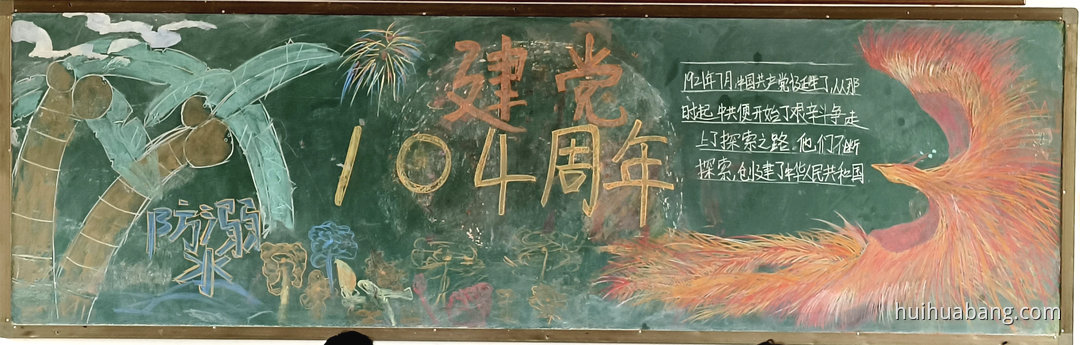 建党
104周年
1921年7月,中国共产党诞生了,从那
时起,中共便开始了艰辛斗争走
上了探索之路.他们不断
探索,创建了中华人民共和国
防溺
水
huihuabang.com